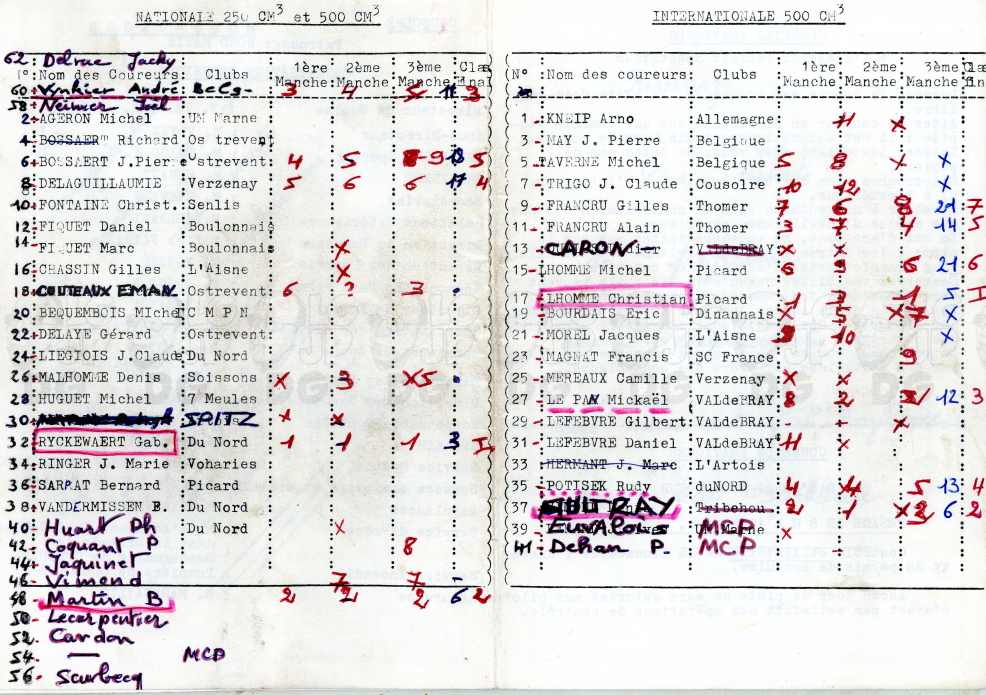 NATIONALE 250 CM3 et 500 CM3
62: Delrue Jacky
N°: Nom des Coureurs: Clubs 1ère Manche 2ème Manche 3ème Manche Clas Final
60 Vynkier André BeCg- 3 4 5 11 3
58 Neimer Joel
2 AGERON Michel UM Marne
4 BOSSAERT Richard Ostrevent
6 BOSSAERT J.Pierre Ostrevent 4 5 9 5
8 DELAGUILLAUMIE Verzenay 5 6 6 17 4
10 FONTAINE Christ. Senlis
12 FIQUET Daniel Boulonnais
14 FIQUET Marc Boulonnais X
16 CHASSIN Gilles L'Aisne X
18 COUTEAUX EMAN. Ostrevent 6 ? 3
20 BEQUEMBOIS Michel C M P N
22 DELAYE Gérard Ostrevent
24 LIEGIOIS J.Claude Du Nord
26 MALHOMME Denis Soissons X 3 X5
28 HUGUET Michel 7 Meules
30 SPITZ X X
32 RYCKEWAERT Gab. Du Nord 1 1 1 3 I
34 RINGER J. Marie Voharies
36 SARRAT Bernard Picard
38 VANDERMISSEN F. Du Nord
40 Huart Ph Du Nord X
42 Coquant P 8
44 Jaquinet
46 Vimond 7 7 -
48 Martin B 2 2 2 6 2
50 Lecarpentier
52 Cardon
54 — MCP
56 Scurbecq
INTERNATIONALE 500 CM3
N° :Nom des coureurs: Clubs 1ère Manche 2ème Manche 3ème Manche Clas fin
1 KNEIP Arno Allemagne 11 X
3 MAY J. Pierre Belgique
5 TAVERNE Michel Belgique 5 8 X X
7 TRIGO J. Claude Cousolre 10 12 X
9 FRANCRU Gilles Thomer 7 6 8 21 7
11 FRANCRU Alain Thomer 3 7 4 14 5
13 CARON ValdeBRAY X X
15 LHOMME Michel Picard 6 9 6 21 6
17 LHOMME Christian Picard 1 3 1 5 I
19 BOURDAIS Eric Dinannais X 5 X7 X
21 MOREL Jacques L'Aisne 9 10 X
23 MAGNAT Francis SC France 9
25 MEREAUX Camille Verzenay X X
27 LE PAN Mickaël VALdeBRAY 8 2 3 12 3
29 LEFEBVRE Gilbert VALdeBRAY X X
31 LEFEBVRE Daniel VALdeBRAY 11 X
33 HERMANT J. Marc L'Artois
35 POTISEK Rudy duNORD 4 4 5 13 4
37 Tribehou 2 1 X2 6 2
39 MCP X
41 Dehan P. MCP